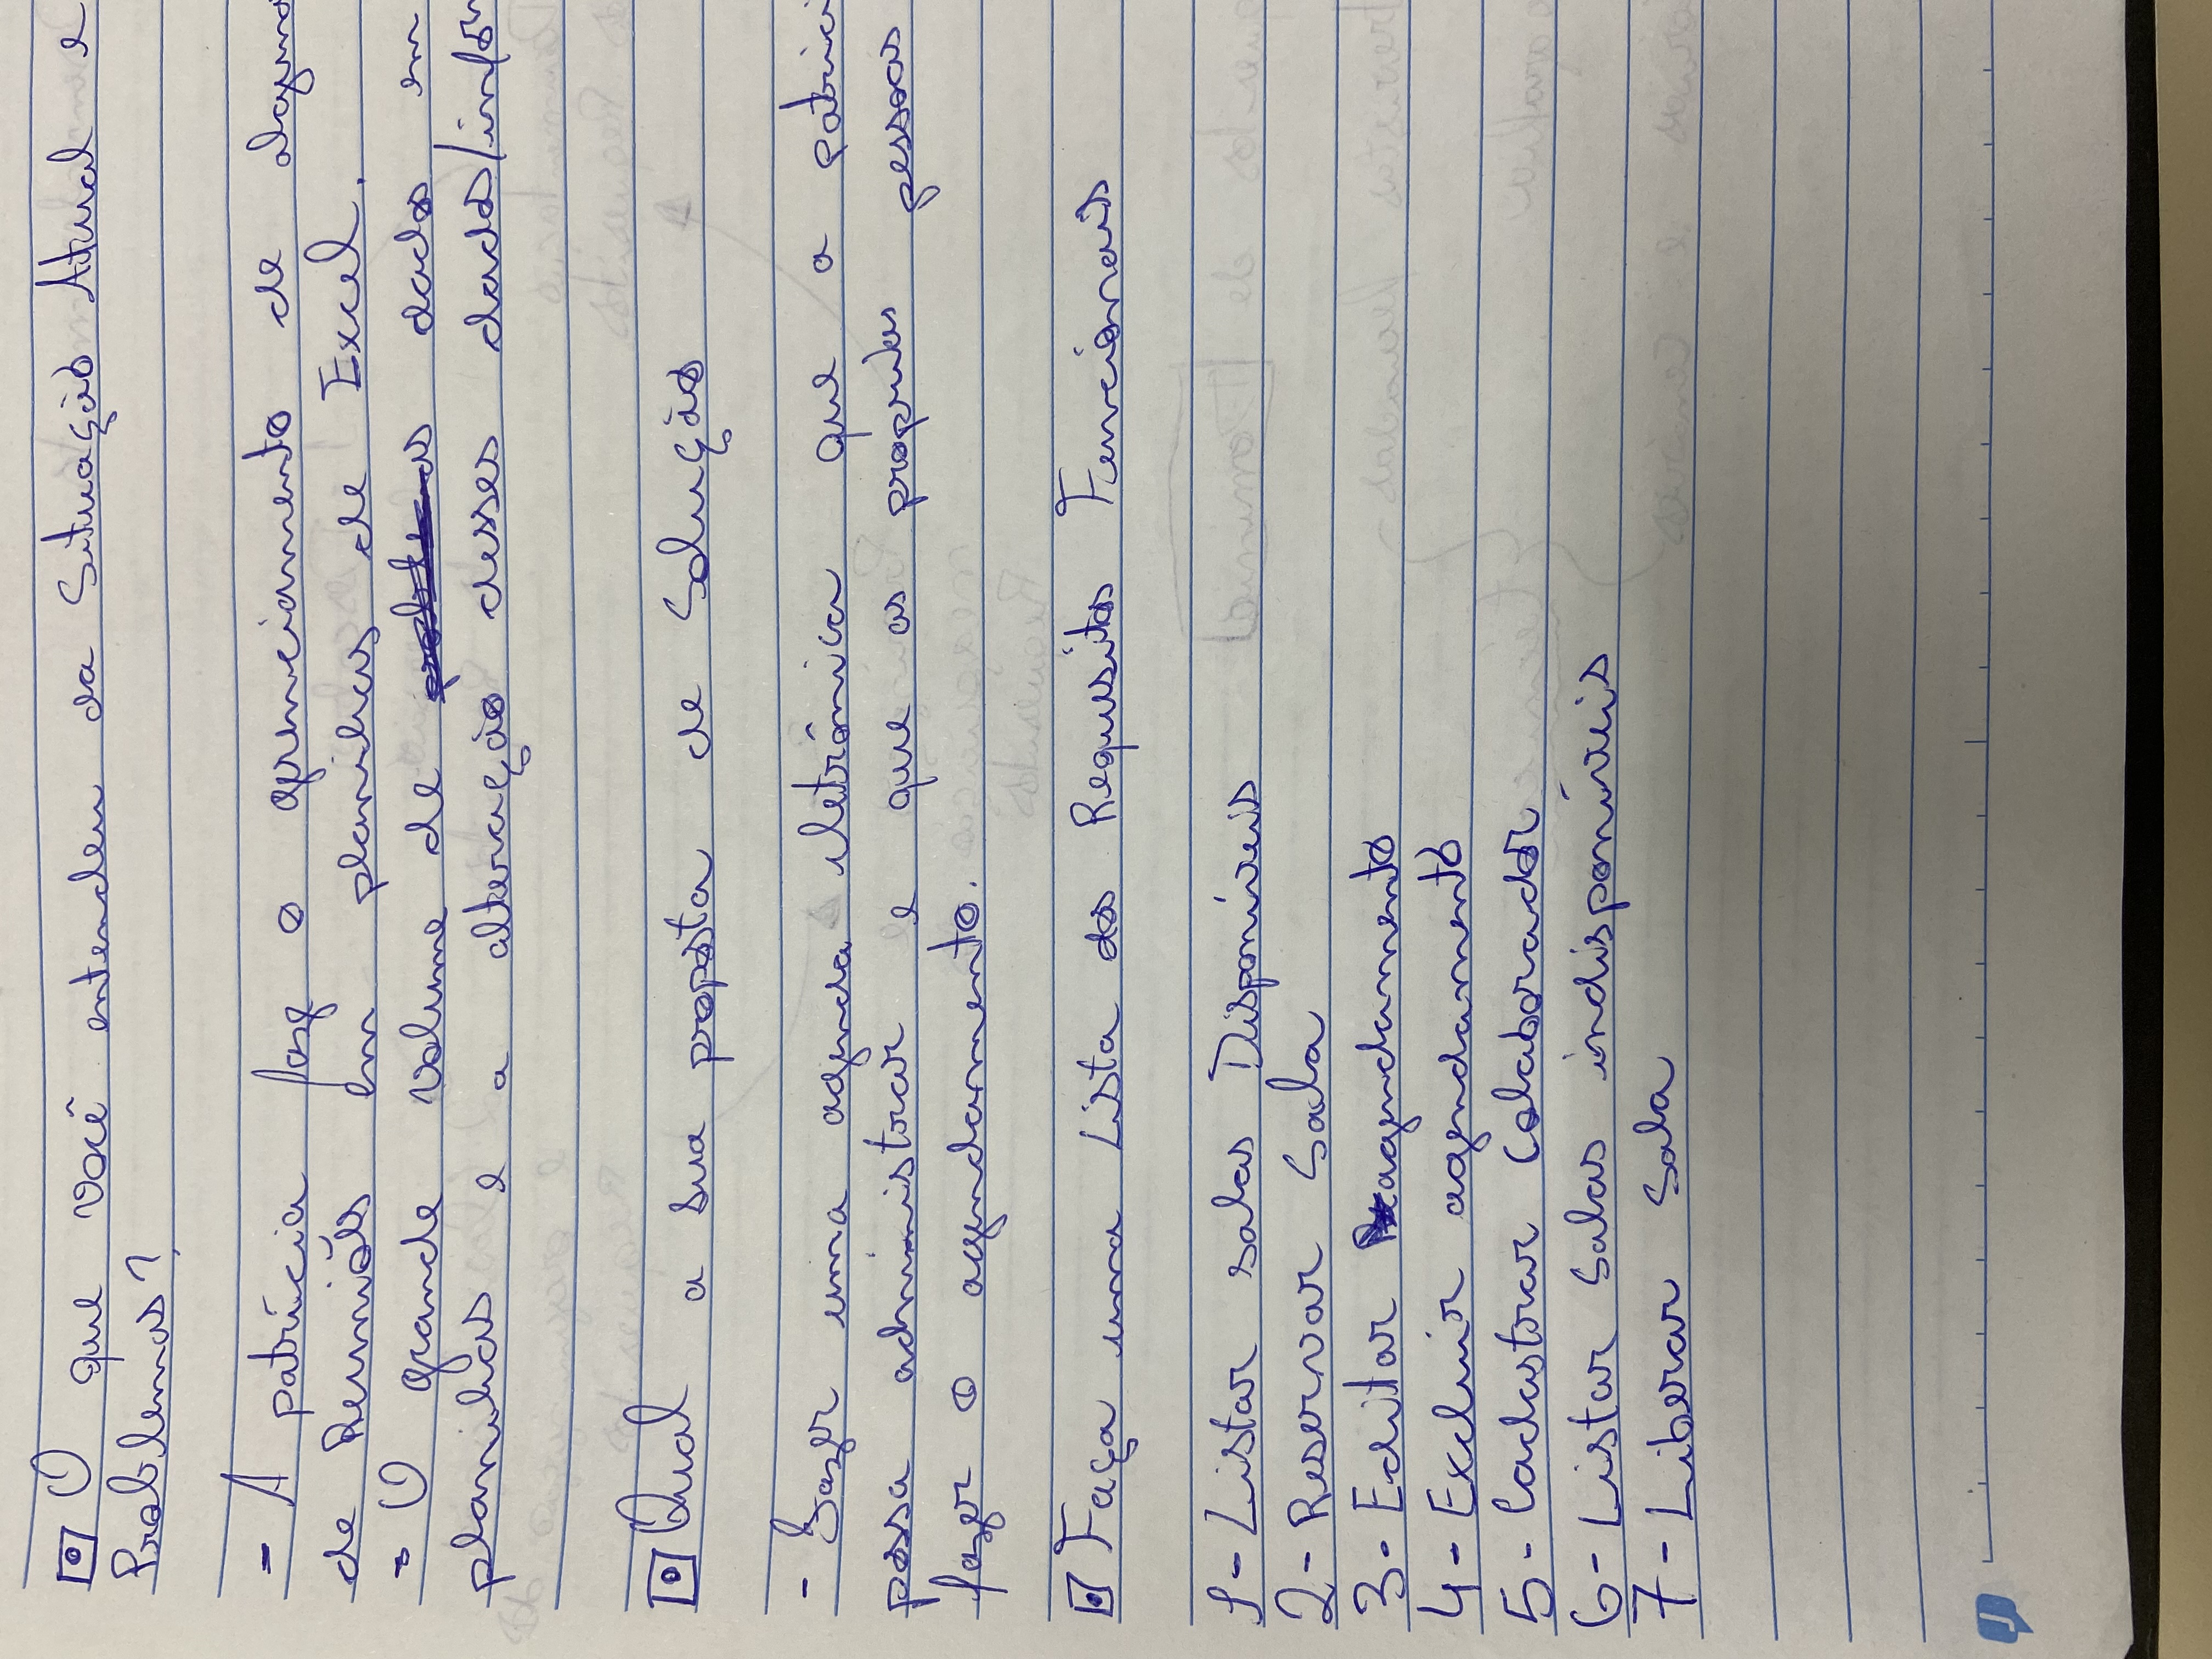 O que você entendeu da Situação Atual e
Problemas?
- A patrícia faz o gerenciamento de
de Reuniões em planilhas de Excel.
- O grande Volume de dados em
planilhas e a alteração desses dados/
Qual a sua proposta de Solução
- Fazer uma agenda eletrônica que a
possa administrar e que as proprias pessoas
fazer o agendamento.
Faça uma Lista dos Requisitos Funcionais
1- Listar salas Disponíveis
2- Reservar Sala
3- Editar agendamento
4- Excluir agendamento
5- Cadastrar Colaborador
6- Listar Salas indisponíveis
7- Liberar Sala